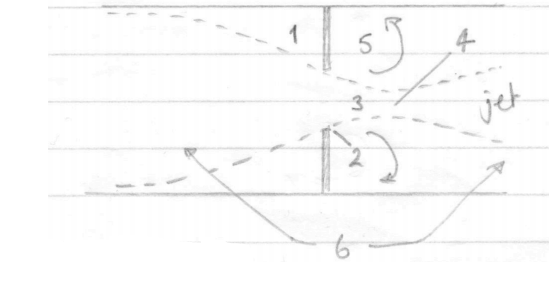 1
5
4
3
jet
2
6